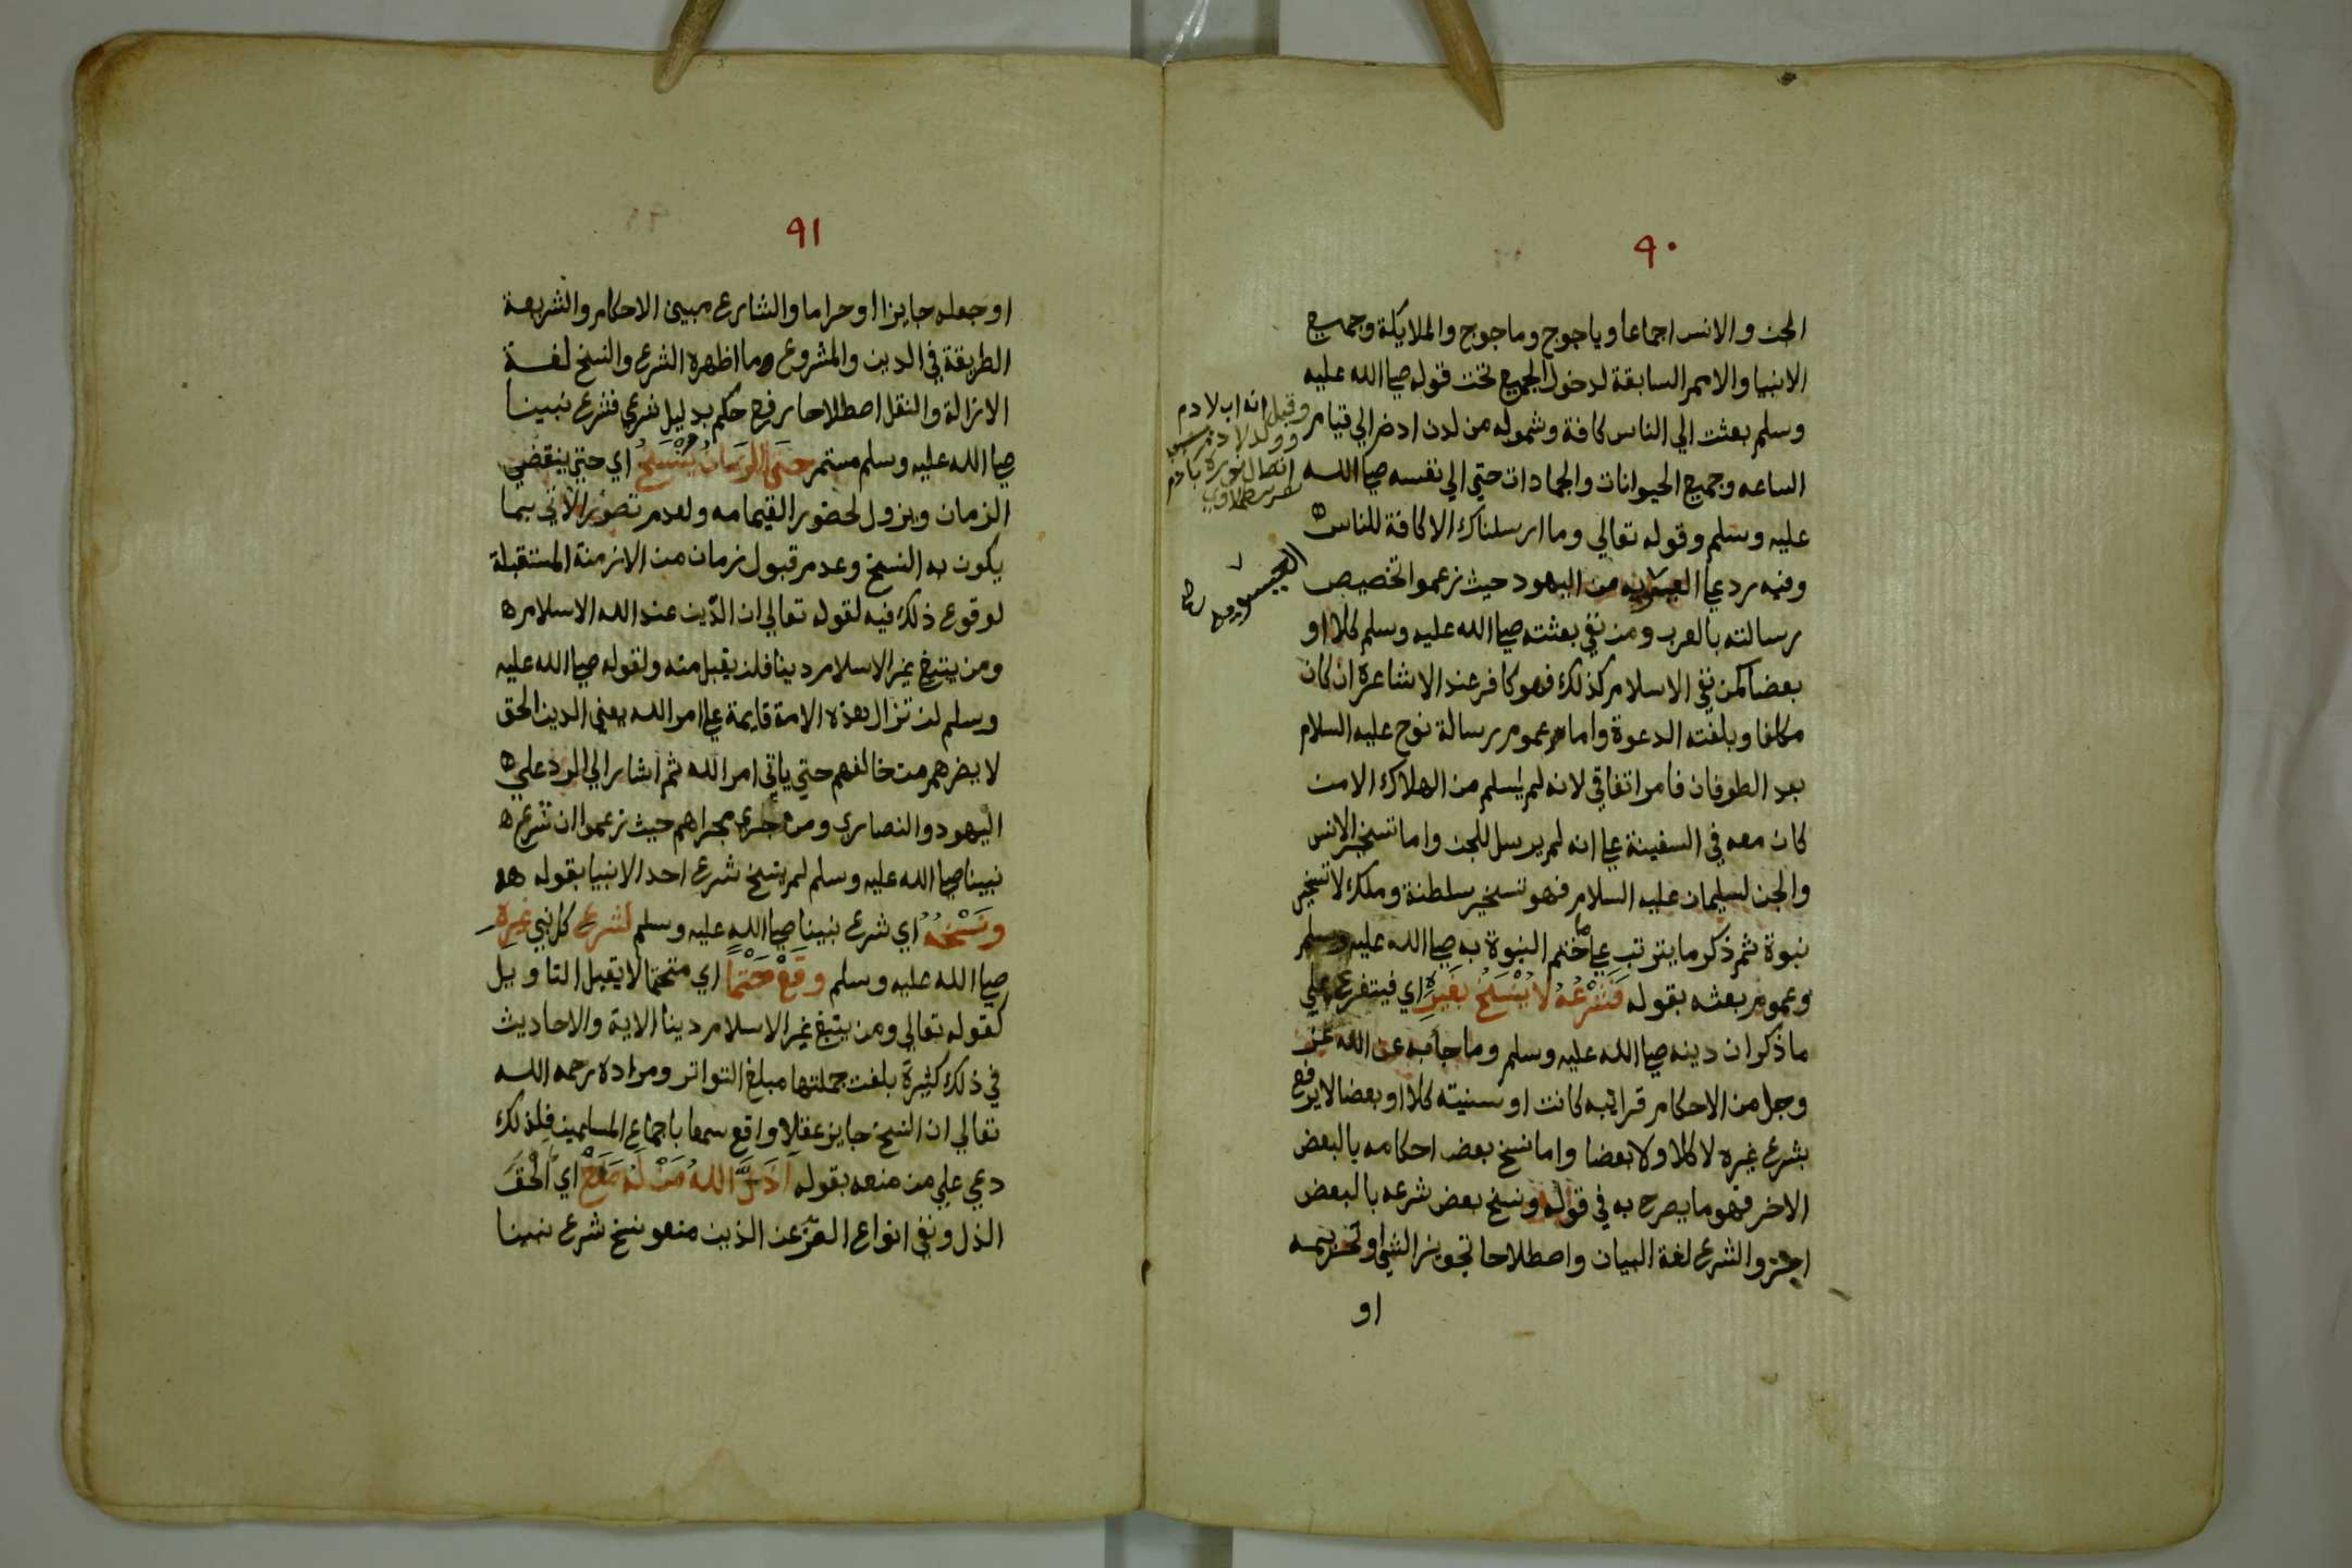 ٩٠
الجن والانس اجماعا وياجوج وماجوج والملايكة وجميع
الانبيا والامم السابقة لدخول الجميع تحت قوله صلى الله عليه
وسلم بعثت الي الناس كافة وشموله من لدن ادم الي قيام
الساعه وجميع الحيوانات والجمادات حتي الي نفسه صلى الله
عليه وسلم وقوله تعالي وما ارسلناك الا كافة للناس
وفيه رد على من اليهود حيث زعموا تخصيص
رسالته بالعرب ومن نفي بعثته صلى الله عليه وسلم كلا او
بعضا كمن نفي الاسلام كذلك فهو كافر عند الاشاعرة ان كان
مكلفا وبلغته الدعوة واما عموم رسالة نوح عليه السلام
بعد الطوفان فامر اتفاقي لانه لم يسلم من الهلاك الا من
كان معه في السفينة على انه لم يرسل للجن واما تسخير الانس
والجن لسليمان عليه السلام فهو تسخير سلطنة وملك لا تسخير
نبوة ثم ذكر ما يترتب على ختم النبوة به صلى الله عليه وسلم
وعموم بعثه بقوله فَشَرْعُهُ لا يُنْسَخُ بغَيرِهِ اي فيتفرع علي
ما ذكر ان دينه صلى الله عليه وسلم وما جا به عن الله عز
وجل من الاحكام قرانيه كانت او سنيته كلا او بعضا لا يرفع
بشرع غيره لا كلا ولا بعضا واما نسخ بعض احكامه بالبعض
الاخر فهو ما يصرح به في قوله ونسخ بعض شرعه بالبعض
اجز والشرع لغة البيان واصطلاحا تجويز الشي او تحريمه
او
وقيل انه اب لادم
٩١
او جعله جايزا او حراما والشارع مبين الاحكام والشريعة
الطريقة في الدين والمشروع وما اظهره الشرع والنسخ لغة
الازالة والنقل اصطلاحا رفع حكم بدليل شرعي فشرع نبينا
صلى الله عليه وسلم مستمر حتى الزمانُ يُنْسَخُ اي حتي ينقضي
الزمان ويزول لحضور القيامه ولعدم تصور الاتي بما
يكون به النسخ وعدم قبول زمان من الازمنة المستقبلة
لوقوع ذلك فيه لقوله تعالي ان الدين عند الله الاسلام
ومن يبتغ غير الاسلام دينا فلن يقبل منه ولقوله صلى الله عليه
وسلم لن تزال هذه الامة قايمة على امر الله يعني الدين الحق
لا يضرهم من خالفهم حتي ياتي امر الله ثم اشار الي الرد علي
اليهود والنصاري ومن جري مجراهم حيث زعموا ان شرع
نبينا صلى الله عليه وسلم لم ينسخ شرع احد الانبيا بقوله
ونَسْخُهُ اي شرع نبينا صلى الله عليه وسلم لشرع كل نبي غيره
صلى الله عليه وسلم وقَعْ حَتْمًا اي متحتما لا يقبل التاويل
كقوله تعالي ومن يبتغ غير الاسلام دينا الاية والاحاديث
في ذلك كثيرة بلغت جملتها مبلغ التواتر ومراده رحمه الله
تعالي ان النسخ جايز عقلا واقع سمعا باجماع المسلمين فلذلك
دعي علي من منعه بقوله أذَلَّ اللهُ مَنْ لَهُ مَنَعْ اي الْحَقَ
الذل ونفي انواع العز عن الذين منعو نسخ شرع نبينا